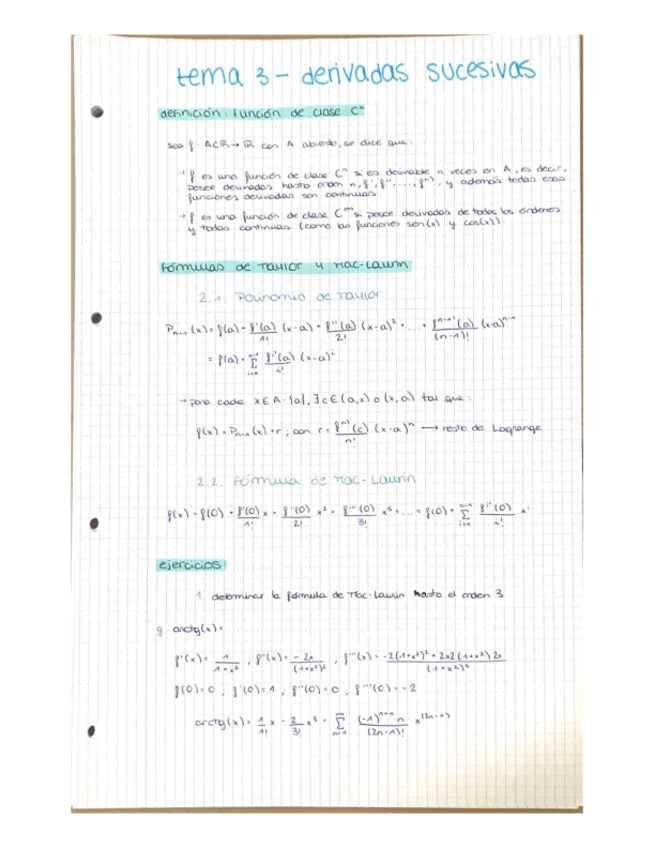 tema 3 - derivadas sucesivas
definición: función de clase Cⁿ
sea f: A⊂ℝ→ℝ con A abierto, se dice que:
→ f es una función de clase Cⁿ si es derivable n veces en A, es decir,
posee derivadas hasta orden n, f', f'', ..., fⁿ⁾, y además todas esas
funciones derivadas son continuas.
→ f es una función de clase C^∞ si posee derivadas de todos los órdenes
y todas continuas (como las funciones sen(x) y cos(x)).
Fórmulas de Taylor y Mac-Laurin
2.1. Polinomio de Taylor
Pₙ₋₁(x) = f(a) + f'(a)/1! (x-a) + f''(a)/2! (x-a)² + ... + fⁿ⁻¹⁾(a)/(n-1)! (x-a)ⁿ⁻¹
= f(a) + Σ fⁱ⁾(a)/i! (x-a)ⁱ
→ para cada x∈A-{a}, ∃c∈(a,x) o (x,a) tal que:
f(x) = Pₙ₋₁(x) + r ; con r = fⁿ⁾(c)/n! (x-a)ⁿ → resto de Lagrange
2.2. Fórmula de Mac-Laurin
f(x) = f(0) + f'(0)/1! x + f''(0)/2! x² + f'''(0)/3! x³ + ... = f(0) + Σ fⁱ⁾(0)/i! xⁱ
ejercicios
1. determinar la fórmula de Mac-Laurin hasta el orden 3
g. arctg(x) =
f'(x) = 1/(1+x²) , f''(x) = -2x/(1+x²)² , f'''(x) = -2(1+x²)² + 2x2(1+x²)2x/(1+x²)⁴
f(0)=0 , f'(0)=1 , f''(0)=0 , f'''(0)=-2
arctg(x) = 1/1! x - 2/3! x³ = Σ (-1)ⁿ⁺¹ n/(2n-1)! x⁽²ⁿ⁻¹⁾